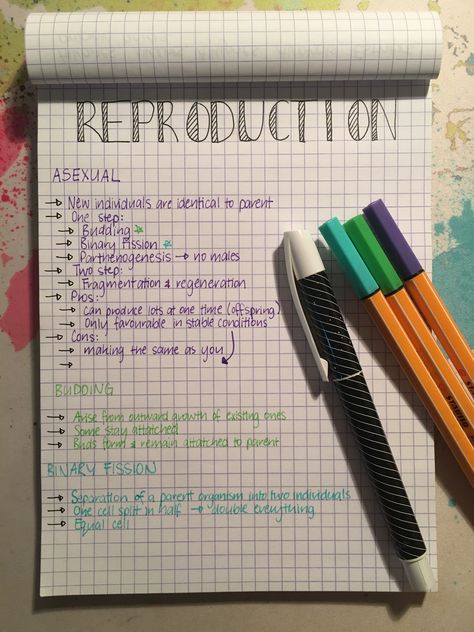 REPRODUCTION
ASEXUAL
→ New individuals are identical to parent
→ One step:
→ Budding ☆
→ Binary Fission ☆
→ Parthenogenesis → no males
→ Two step:
→ Fragmentation & regeneration
→ Phos:
→ can produce lots at one time (offspring)
→ Only favourable in stable conditions
→ Cons:
→ making the same as you
→
BUDDING
→ Arise from outward growth of existing ones
→ Some stay attatched
→ Buds form & remain attatched to parent
BINARY FISSION
→ Separation of a parent organism into two individuals
→ One cell split in half → double everything
→ Equal cell
STABILO